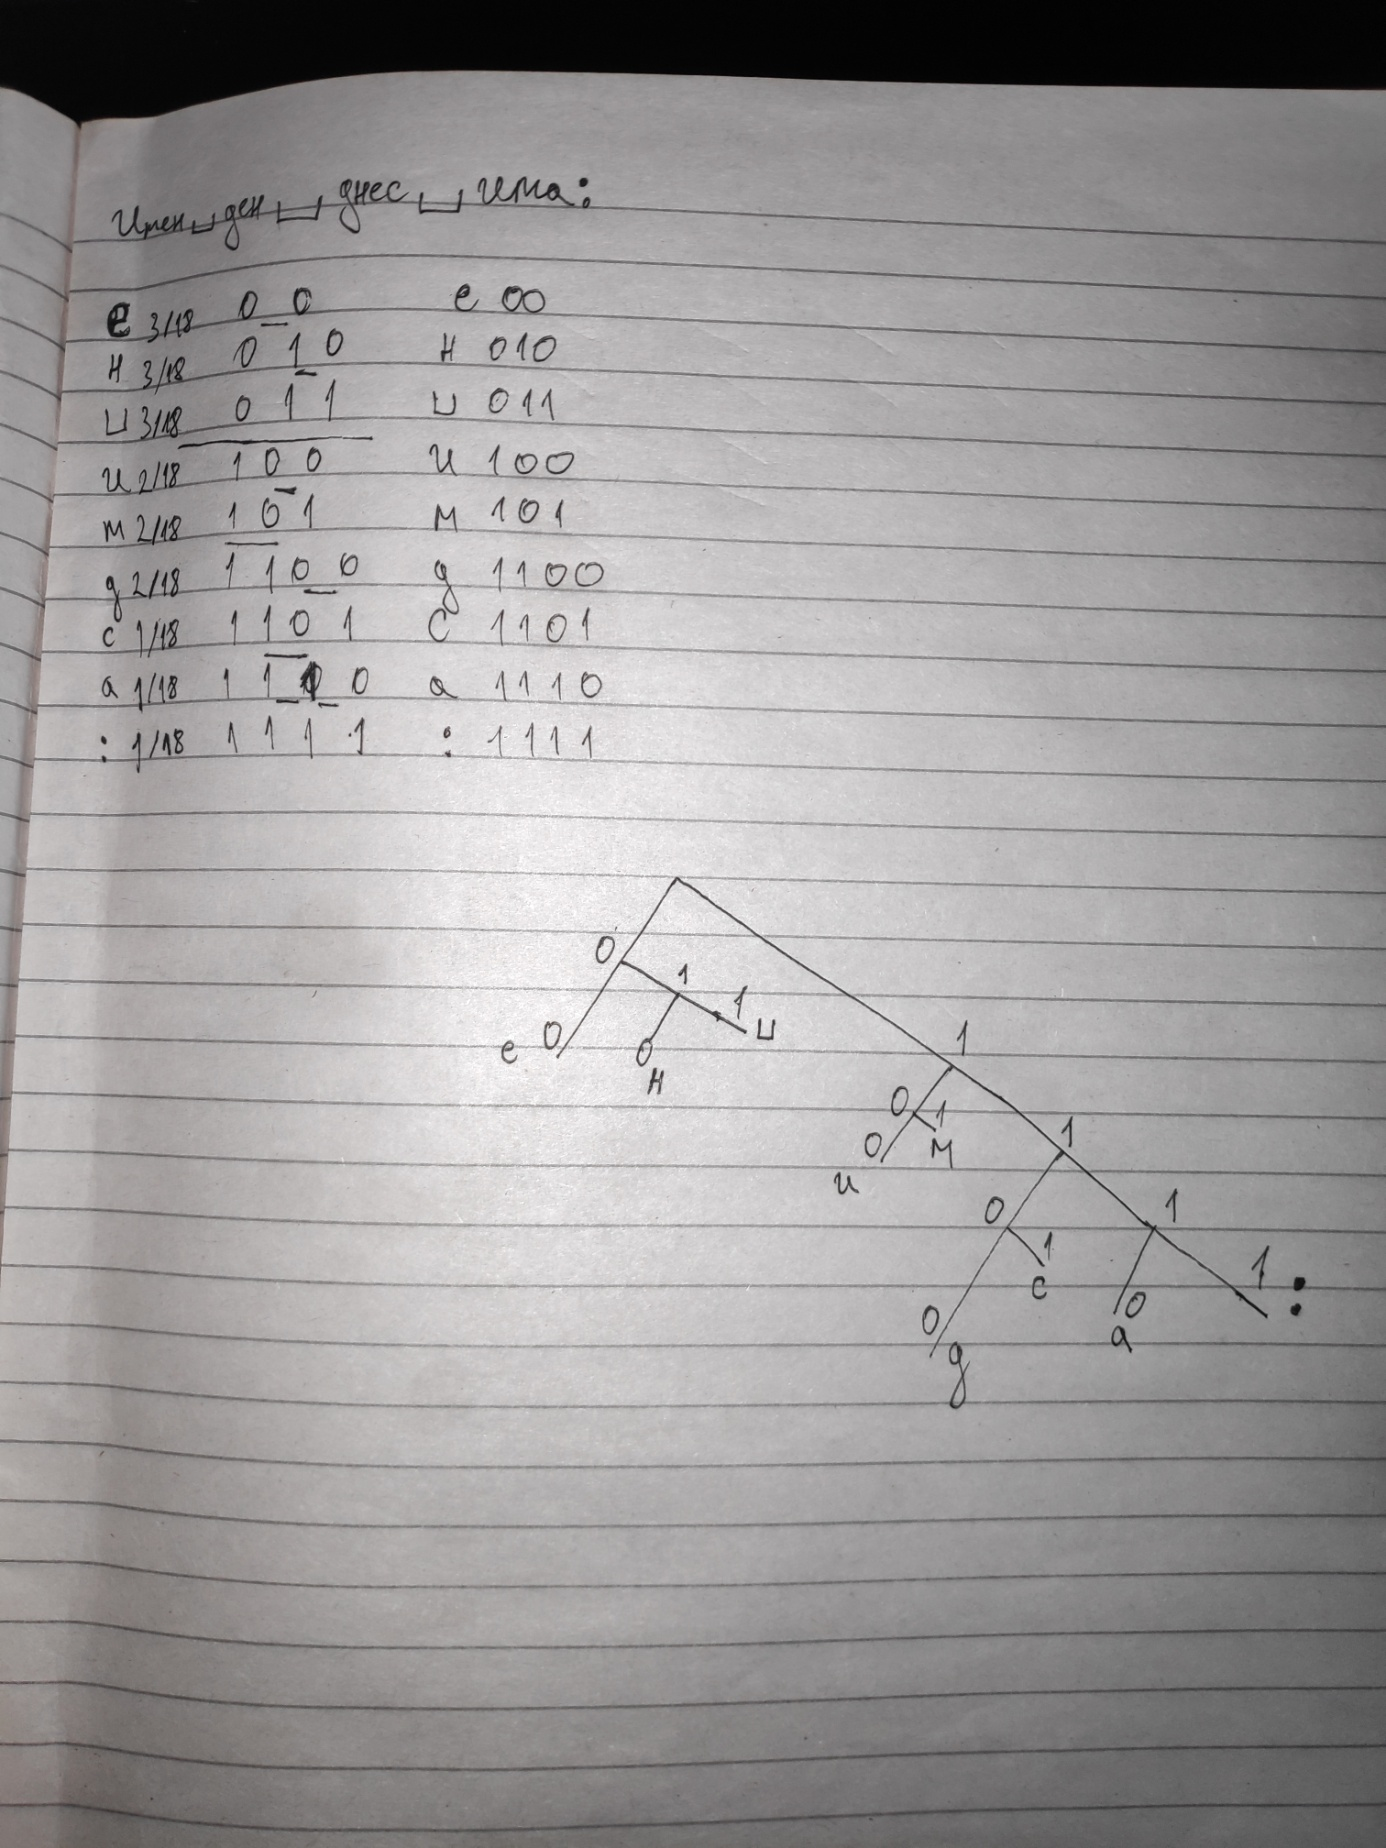 Имен␣ден␣днес␣има:
е 3/18 0 0 е 00
н 3/18 0 1 0 н 010
␣ 3/18 0 1 1 ␣ 011
и 2/18 1 0 0 и 100
м 2/18 1 0 1 м 101
д 2/18 1 1 0 0 д 1100
с 1/18 1 1 0 1 с 1101
а 1/18 1 1 1 0 а 1110
: 1/18 1 1 1 1 : 1111
0 1 1
е 0 0 ␣
н
1
0 1 1
0 м
и
0 1 1
1 :
с 0
0 а
д